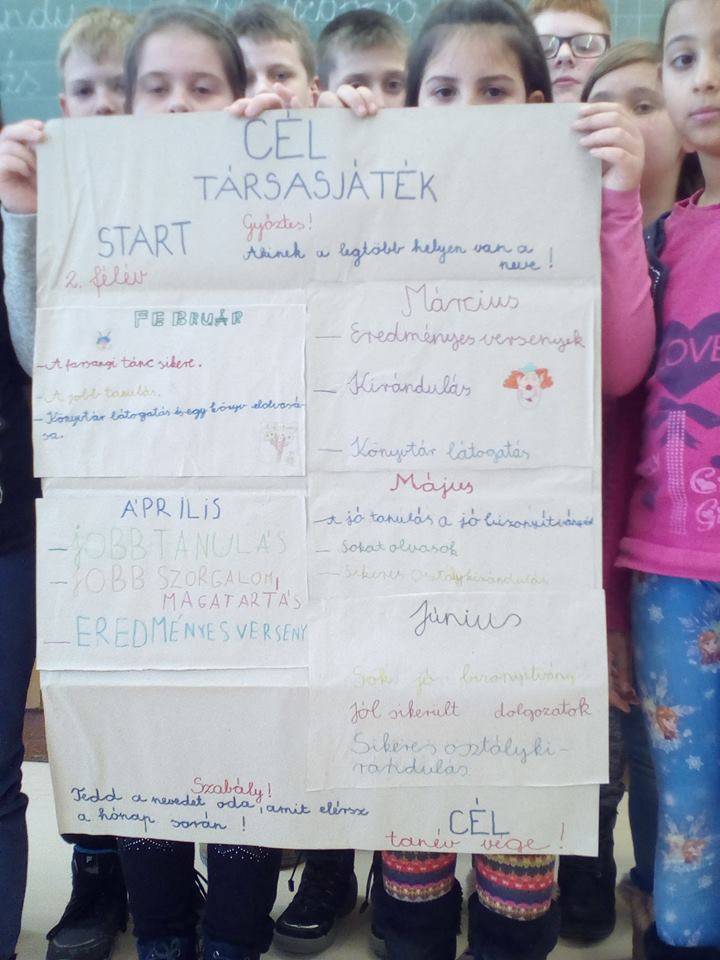 CÉL
TÁRSASJÁTÉK
START
2. félév
Győztes!
Akinek a legtöbb helyen van a
neve!
FEBRUÁR
-A farsangi tánc sikere.
-A jobb tanulás.
-Könyvtár látogatás és egy könyv elolvasá-
sa.
Március
— Eredményes versenyek
— Kirándulás
— Könyvtár látogatás
ÁPRILIS
-JOBB TANULÁS
-JOBB SZORGALOM,
MAGATARTÁS
— EREDMÉNYES VERSENY
Május
-A jó tanulás a jó bizonyítványért
- Sokat olvasok
- Sikeres osztálykirándulás
Június
Sok jó bizonyítvány
Jól sikerült dolgozatok
Sikeres osztályki-
rándulás
Szabály!
Tedd a nevedet oda, amit elérsz
a hónap során!
CÉL
tanév vége!
LOVE